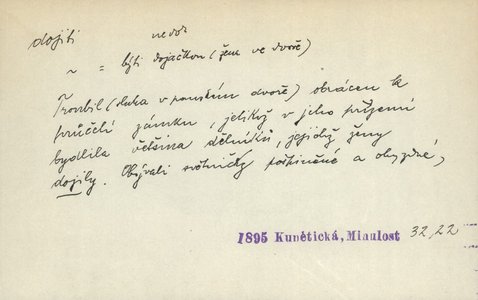 dojiti nedok
~ = býti dojačkou (žena ve dvoře)
Trorbil (duha v panském dvoře) obrácen k
průčelí zámku, jelikož v jeho přízemí
bydlila většina dělníků, jejichž ženy
dojily. Obývali světničky poškrněné a ohyzdné,
1895 Kunětická, Minulost 32,22